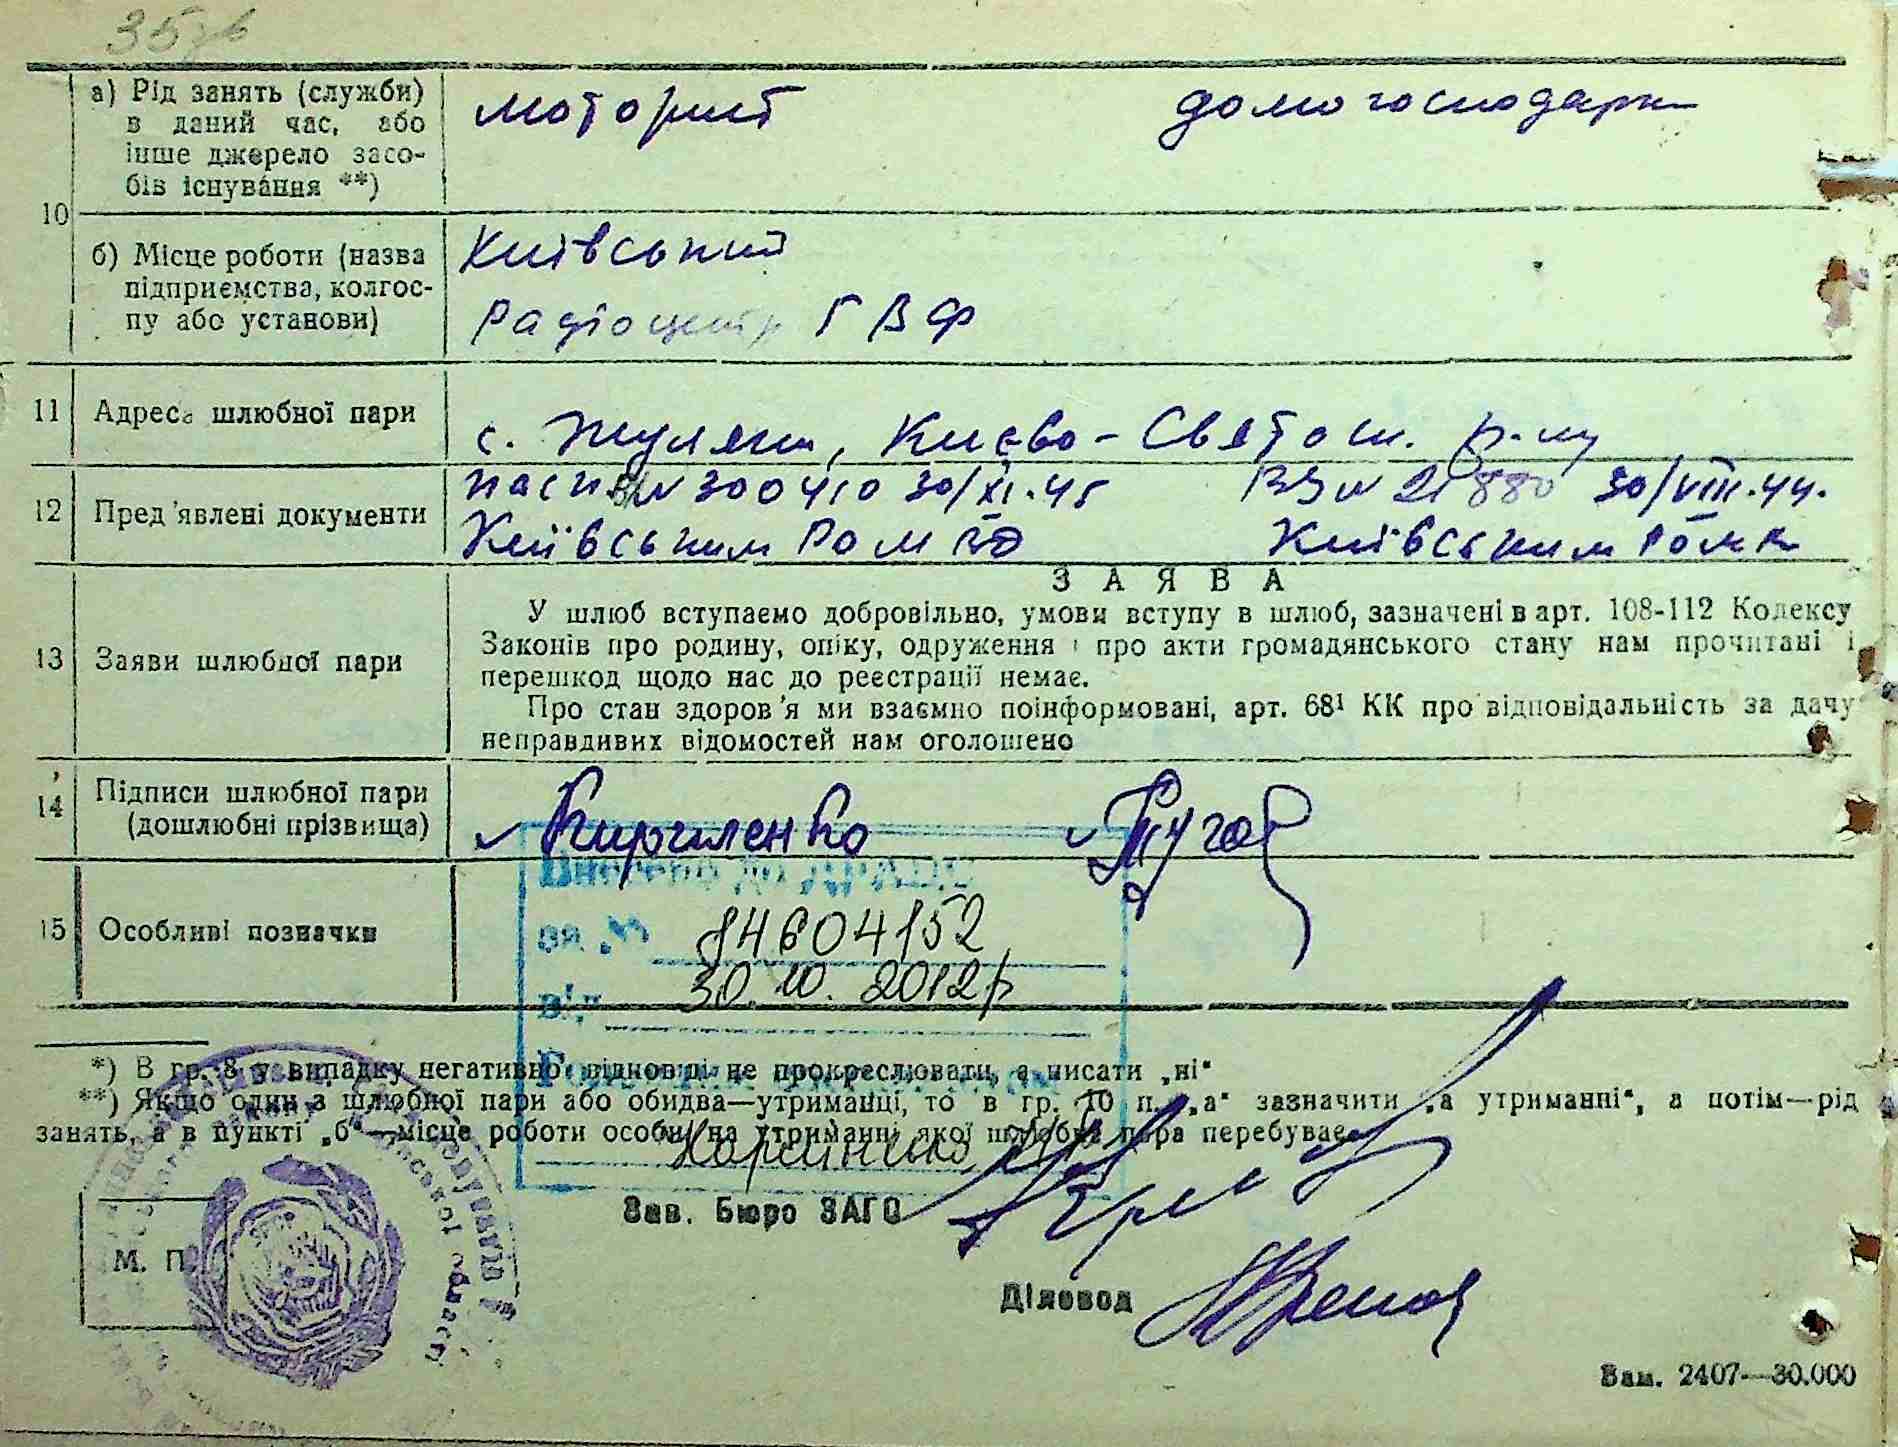 35
а) Рід занять (служби)
в даний час, або
інше джерело засо-
бів існування **)
моторист
домогосподарка
10
б) Місце роботи (назва
підприємства, колгос-
пу або установи)
Київський
Радіоцентр ГВФ
11 Адреса шлюбної пари
с. Жуляни, Києво-Святош. р-ну
12 Пред'явлені документи
паспорт № 300410 30/XI.45
№ 21880 30/VIII.44.
Київським РОМ
Київським РОМ
З А Я В А
13 Заяви шлюбної пари
У шлюб вступаємо добровільно, умови вступу в шлюб, зазначені в арт. 108-112 Кодексу
Законів про родину, опіку, одруження і про акти громадянського стану нам прочитані і
перешкод щодо нас до реєстрації немає.
Про стан здоров'я ми взаємно поінформовані, арт. 68¹ КК про відповідальність за дачу
неправдивих відомостей нам оголошено
14 Підписи шлюбної пари
(дошлюбні прізвища)
Кириленко
Пугач
15 Особливі позначки
Внесено до ДРАЦС
за №
14604152
від 30.10.2012р
*) В гр. 8 у випадку негативної відповіді не прокреслювати, а писати „ні“
**) Якщо один з шлюбної пари або обидва—утриманці, то в гр. 10 п. „а“ зазначити „а утриманні“, а потім—рід
занять, а в пункті „б“—місце роботи особи, на утриманні якої шлюбна пара перебуває.
Зав. Бюро ЗАГС
М. П.
Діловод
Зам. 2407—30.000